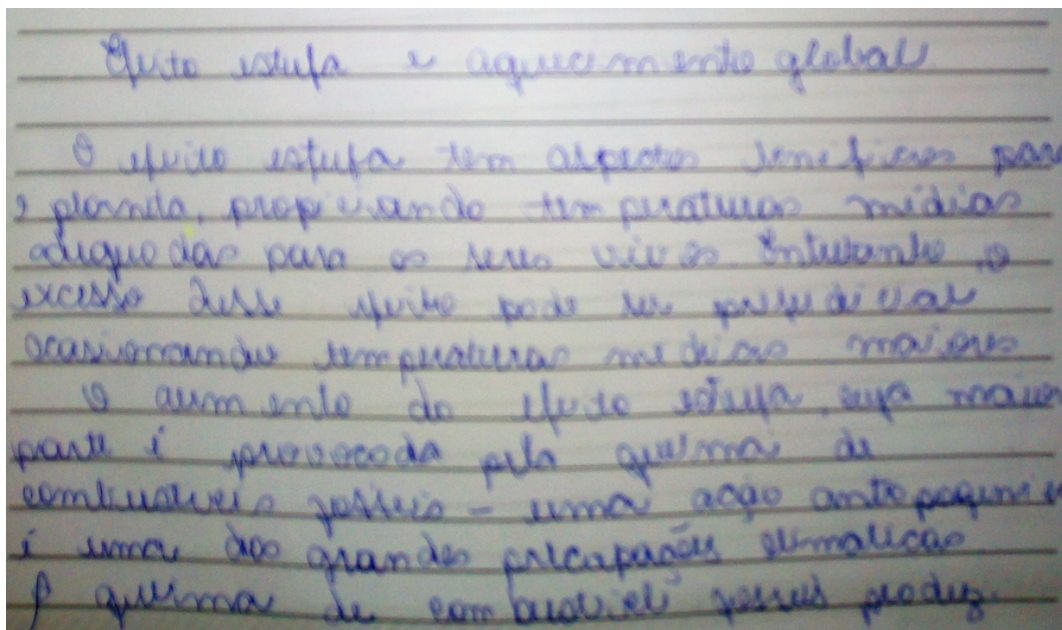 Efeito estufa e aquecimento global
O efeito estufa tem aspectos benéficos para
o planeta, propiciando temperaturas médias
adequadas para os seres vivos. Entretanto, o
excesso desse efeito pode ser prejudicial
ocasionando temperaturas médias maiores
O aumento do efeito estufa, cuja maior
parte é provocada pela queima de
combustíveis fósseis - uma ação antropogenica
é uma das grandes preocupações climáticas
A queima de combustíveis fósseis produz.